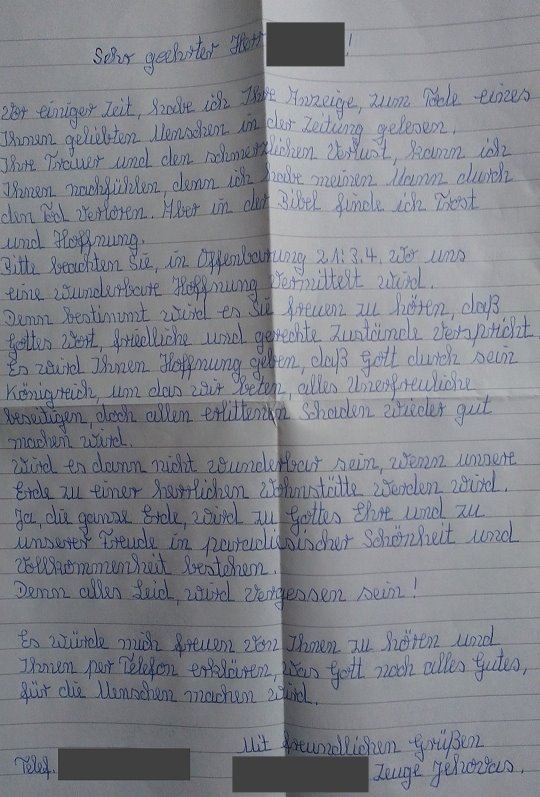 Sehr geehrter Herr !
Vor einiger Zeit, habe ich Ihre Anzeige, zum Tode eines
Ihnen geliebten Menschen in der Zeitung gelesen.
Ihre Trauer und den schmerzlichen Verlust, kann ich
Ihnen nachfühlen, denn ich habe meinen Mann durch
den Tod verloren. Aber in der Bibel finde ich Trost
und Hoffnung.
Bitte beachten Sie, in Offenbarung 21:3.4. wo uns
eine wunderbare Hoffnung vermittelt wird.
Denn bestimmt wird es Sie freuen zu hören, daß
Gottes Wort, friedliche und gerechte Zustände verspricht.
Es wird Ihnen Hoffnung geben, daß Gott durch sein
Königreich, um das wir beten, alles Unerfreuliche
beseitigen, doch allen erlittenen Schaden wieder gut
machen wird.
Wird es dann nicht wunderbar sein, wenn unsere
Erde zu einer herrlichen Wohnstätte werden wird.
Ja, die ganze Erde, wird zu Gottes Ehre und zu
unserer Freude in paradiesischer Schönheit und
Vollkommenheit bestehen.
Denn alles Leid, wird vergessen sein!
Es würde mich freuen von Ihnen zu hören und
Ihnen per Telefon erklären, was Gott noch alles Gutes,
für die Menschen machen wird.
Mit freundlichen Grüßen
Telef. Zeuge Jehovas.